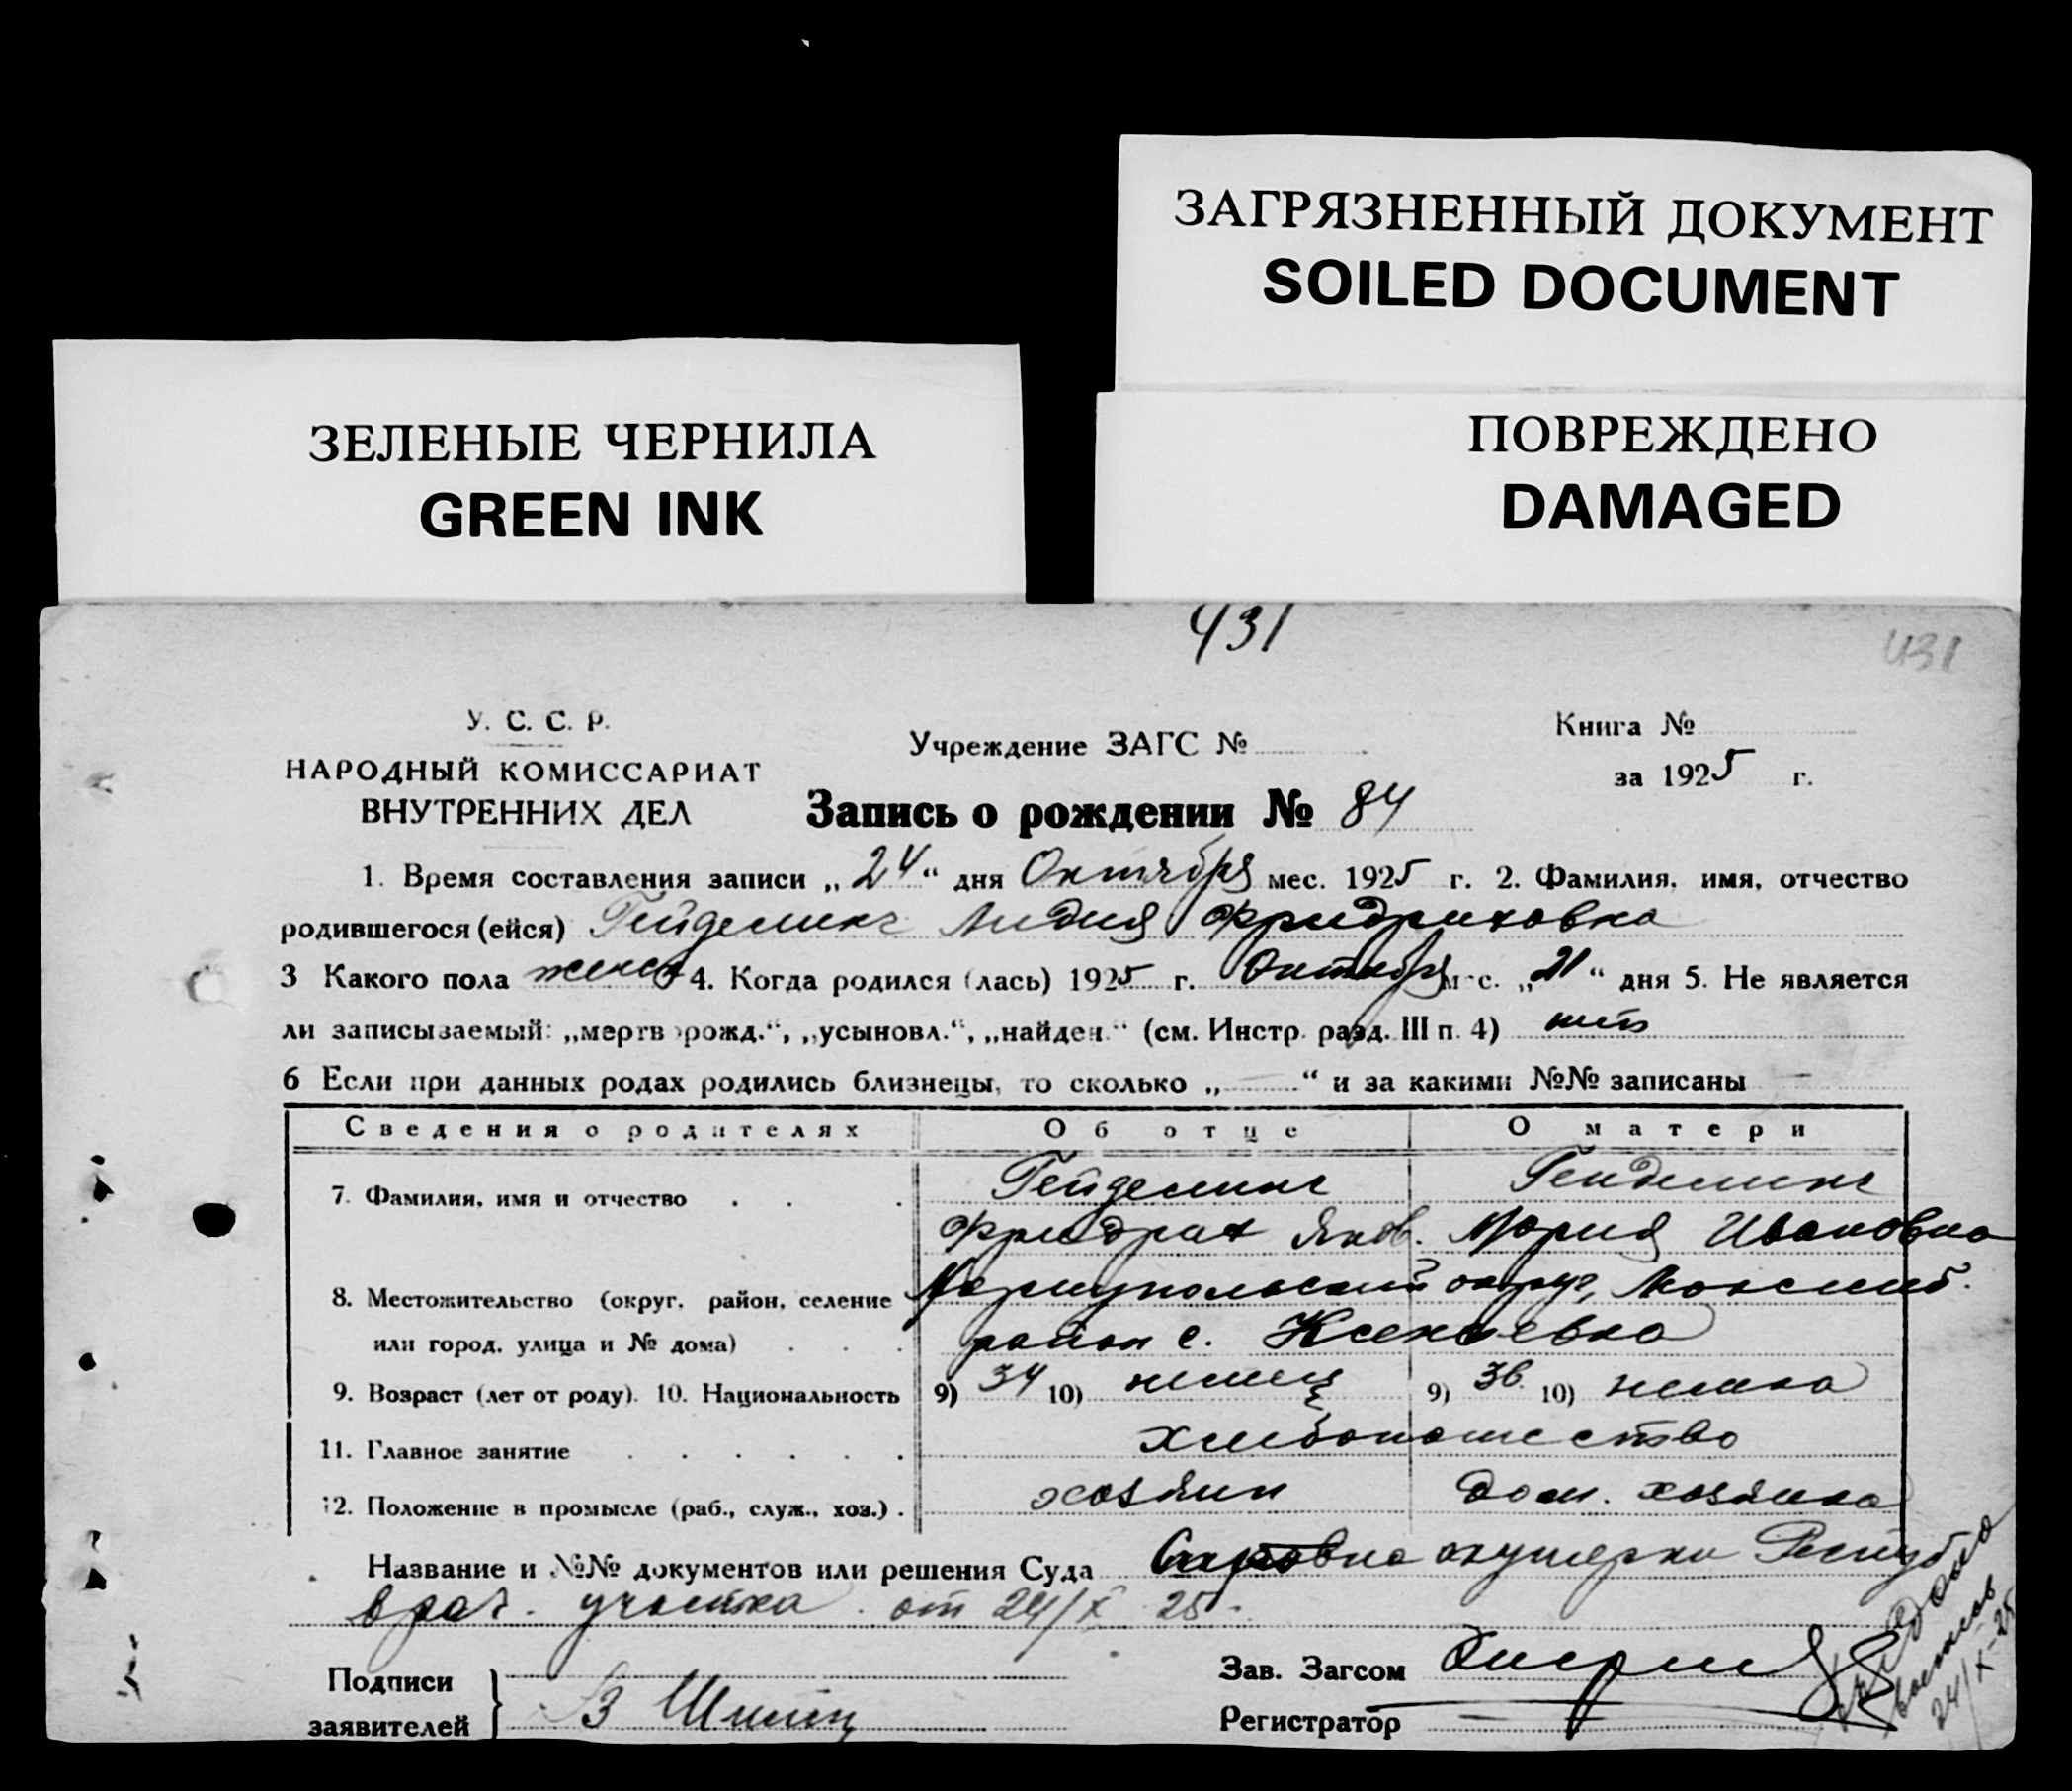 ЗАГРЯЗНЕННЫЙ ДОКУМЕНТ
SOILED DOCUMENT
ЗЕЛЕНЫЕ ЧЕРНИЛА
GREEN INK
ПОВРЕЖДЕНО
DAMAGED
431
431
У. С. С. Р.
НАРОДНЫЙ КОМИССАРИАТ
ВНУТРЕННИХ ДЕЛ
Учреждение ЗАГС №
Книга №
за 1925 г.
Запись о рождении № 84
1. Время составления записи „24“ дня Октября мес. 1925 г. 2. Фамилия, имя, отчество
родившегося (ейся) Гейделинг Лидия Фридриховна
3 Какого пола женск 4. Когда родился (лась) 1925 г. Октября м с. „21“ дня 5. Не является
ли записываемый: „мертворожд.“, „усыновл.“, „найден.“ (см. Инстр. разд. III п. 4) нет
6 Если при данных родах родились близнецы, то сколько „—“ и за какими №№ записаны —
Сведения о родителях Об отце О матери
7. Фамилия, имя и отчество Гейделинг Гейделинг
Фридрих Яков. Мария Ивановна
8. Местожительство (округ, район, селение Мариупольский округ,
или город, улица и № дома) район с. Ксеньевка
9. Возраст (лет от роду). 10. Национальность 9) 34 10) немец 9) 36 10) немка
11. Главное занятие хлебопашество
12. Положение в промысле (раб., служ., хоз.) хозяин дом. хозяйка
Название и №№ документов или решения Суда акушерки
врач. участка от 24/X 25
Подписи
заявителей
Зав. Загсом
Регистратор
24/X-25